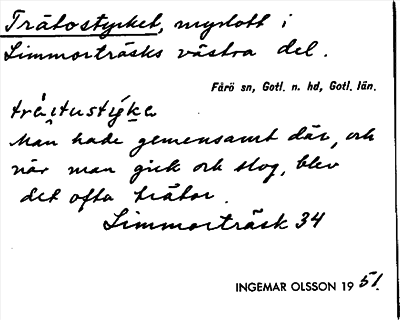 Trätostycket, myslott i
Limmorträsks västra del.
Fårö sn, Gotl. n. hd, Gotl. län.
Man hade gemensamt där, och
när man gick och slog, blev
det ofta trätor.
Limmorträsk 34
INGEMAR OLSSON 1951